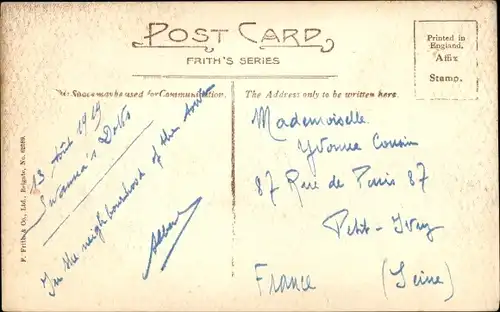 POST CARD
FRITH'S SERIES
Printed in
England.
Affix
Stamp.
This Space may be used for Communication.
The Address only to be written here.
F. Frith & Co., Ltd., Reigate, No.
13 Août 1919
Swansea's Docks
In the neighbourhood of the town
Albert
Mademoiselle
Yvonne Cousin
87 Rue de Paris 87
Petit-Ivry
France (Seine)